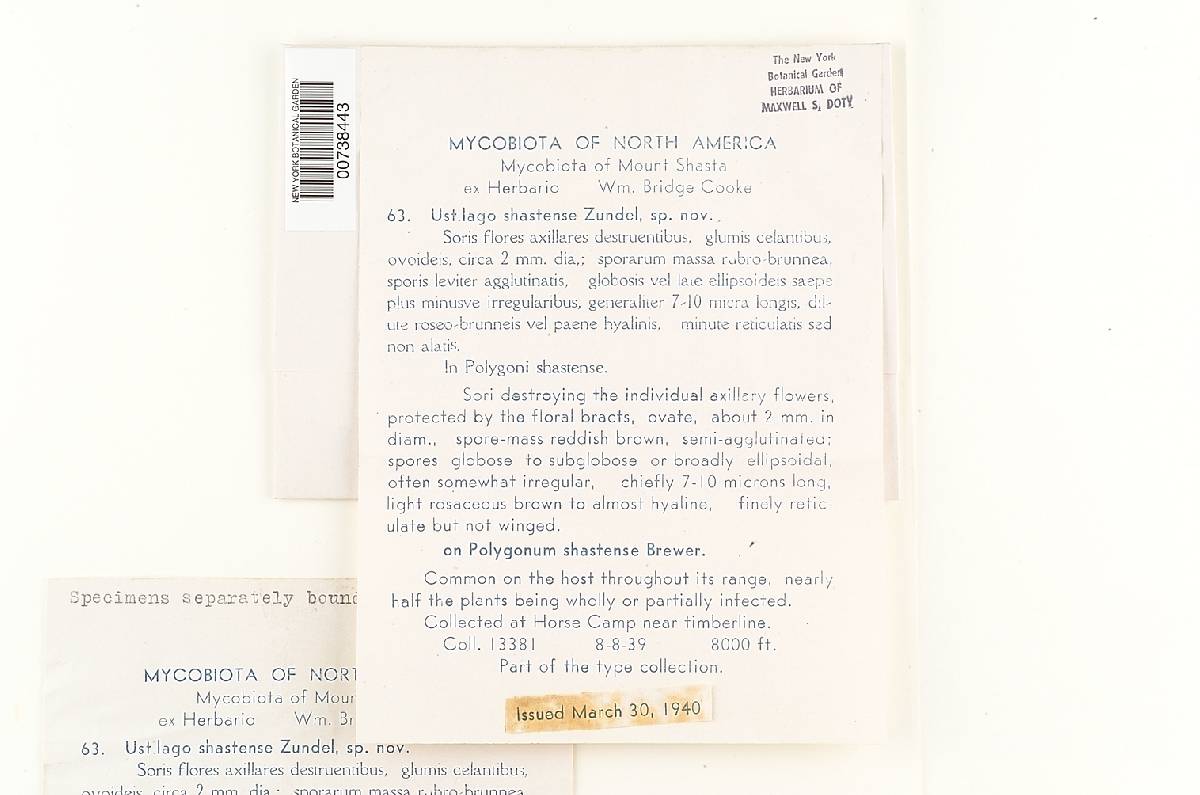 NEW YORK BOTANICAL GARDEN
00738443
The New York
Botanical Garden
HERBARIUM OF
MAXWELL S. DOTY
MYCOBIOTA OF NORTH AMERICA
Mycobiota of Mount Shasta
ex Herbario Wm. Bridge Cooke
63. Ustilago shastense Zundel, sp. nov.
Soris flores axillares destruentibus, glumis celantibus,
ovoideis, circa 2 mm. dia.; sporarum massa rubro-brunnea,
sporis leviter agglutinatis, globosis vel late ellipsoideis saepe
plus minusve irregularibus, generaliter 7-10 micra longis, dil-
ute roseo-brunneis vel paene hyalinis, minute reticulatis sed
non alatis.
In Polygoni shastense.
Sori destroying the individual axillary flowers,
protected by the floral bracts, ovate, about 2 mm. in
diam., spore-mass reddish brown, semi-agglutinated;
spores globose to subglobose or broadly ellipsoidal,
often somewhat irregular, chiefly 7-10 microns long,
light rosaceous brown to almost hyaline, finely retic-
ulate but not winged.
on Polygonum shastense Brewer.
Common on the host throughout its range, nearly
half the plants being wholly or partially infected.
Collected at Horse Camp near timberline.
Coll. 13381 8-8-39 8000 ft.
Part of the type collection.
Issued March 30, 1940
Specimens separately bound
MYCOBIOTA OF NORT
Mycobiota of Moun
ex Herbario Wm. Br
63. Ustilago shastense Zundel, sp. nov.
Soris flores axillares destruentibus, glumis celantibus,
ovoideis, circa 2 mm. dia.; sporarum massa rubro-brunnea,